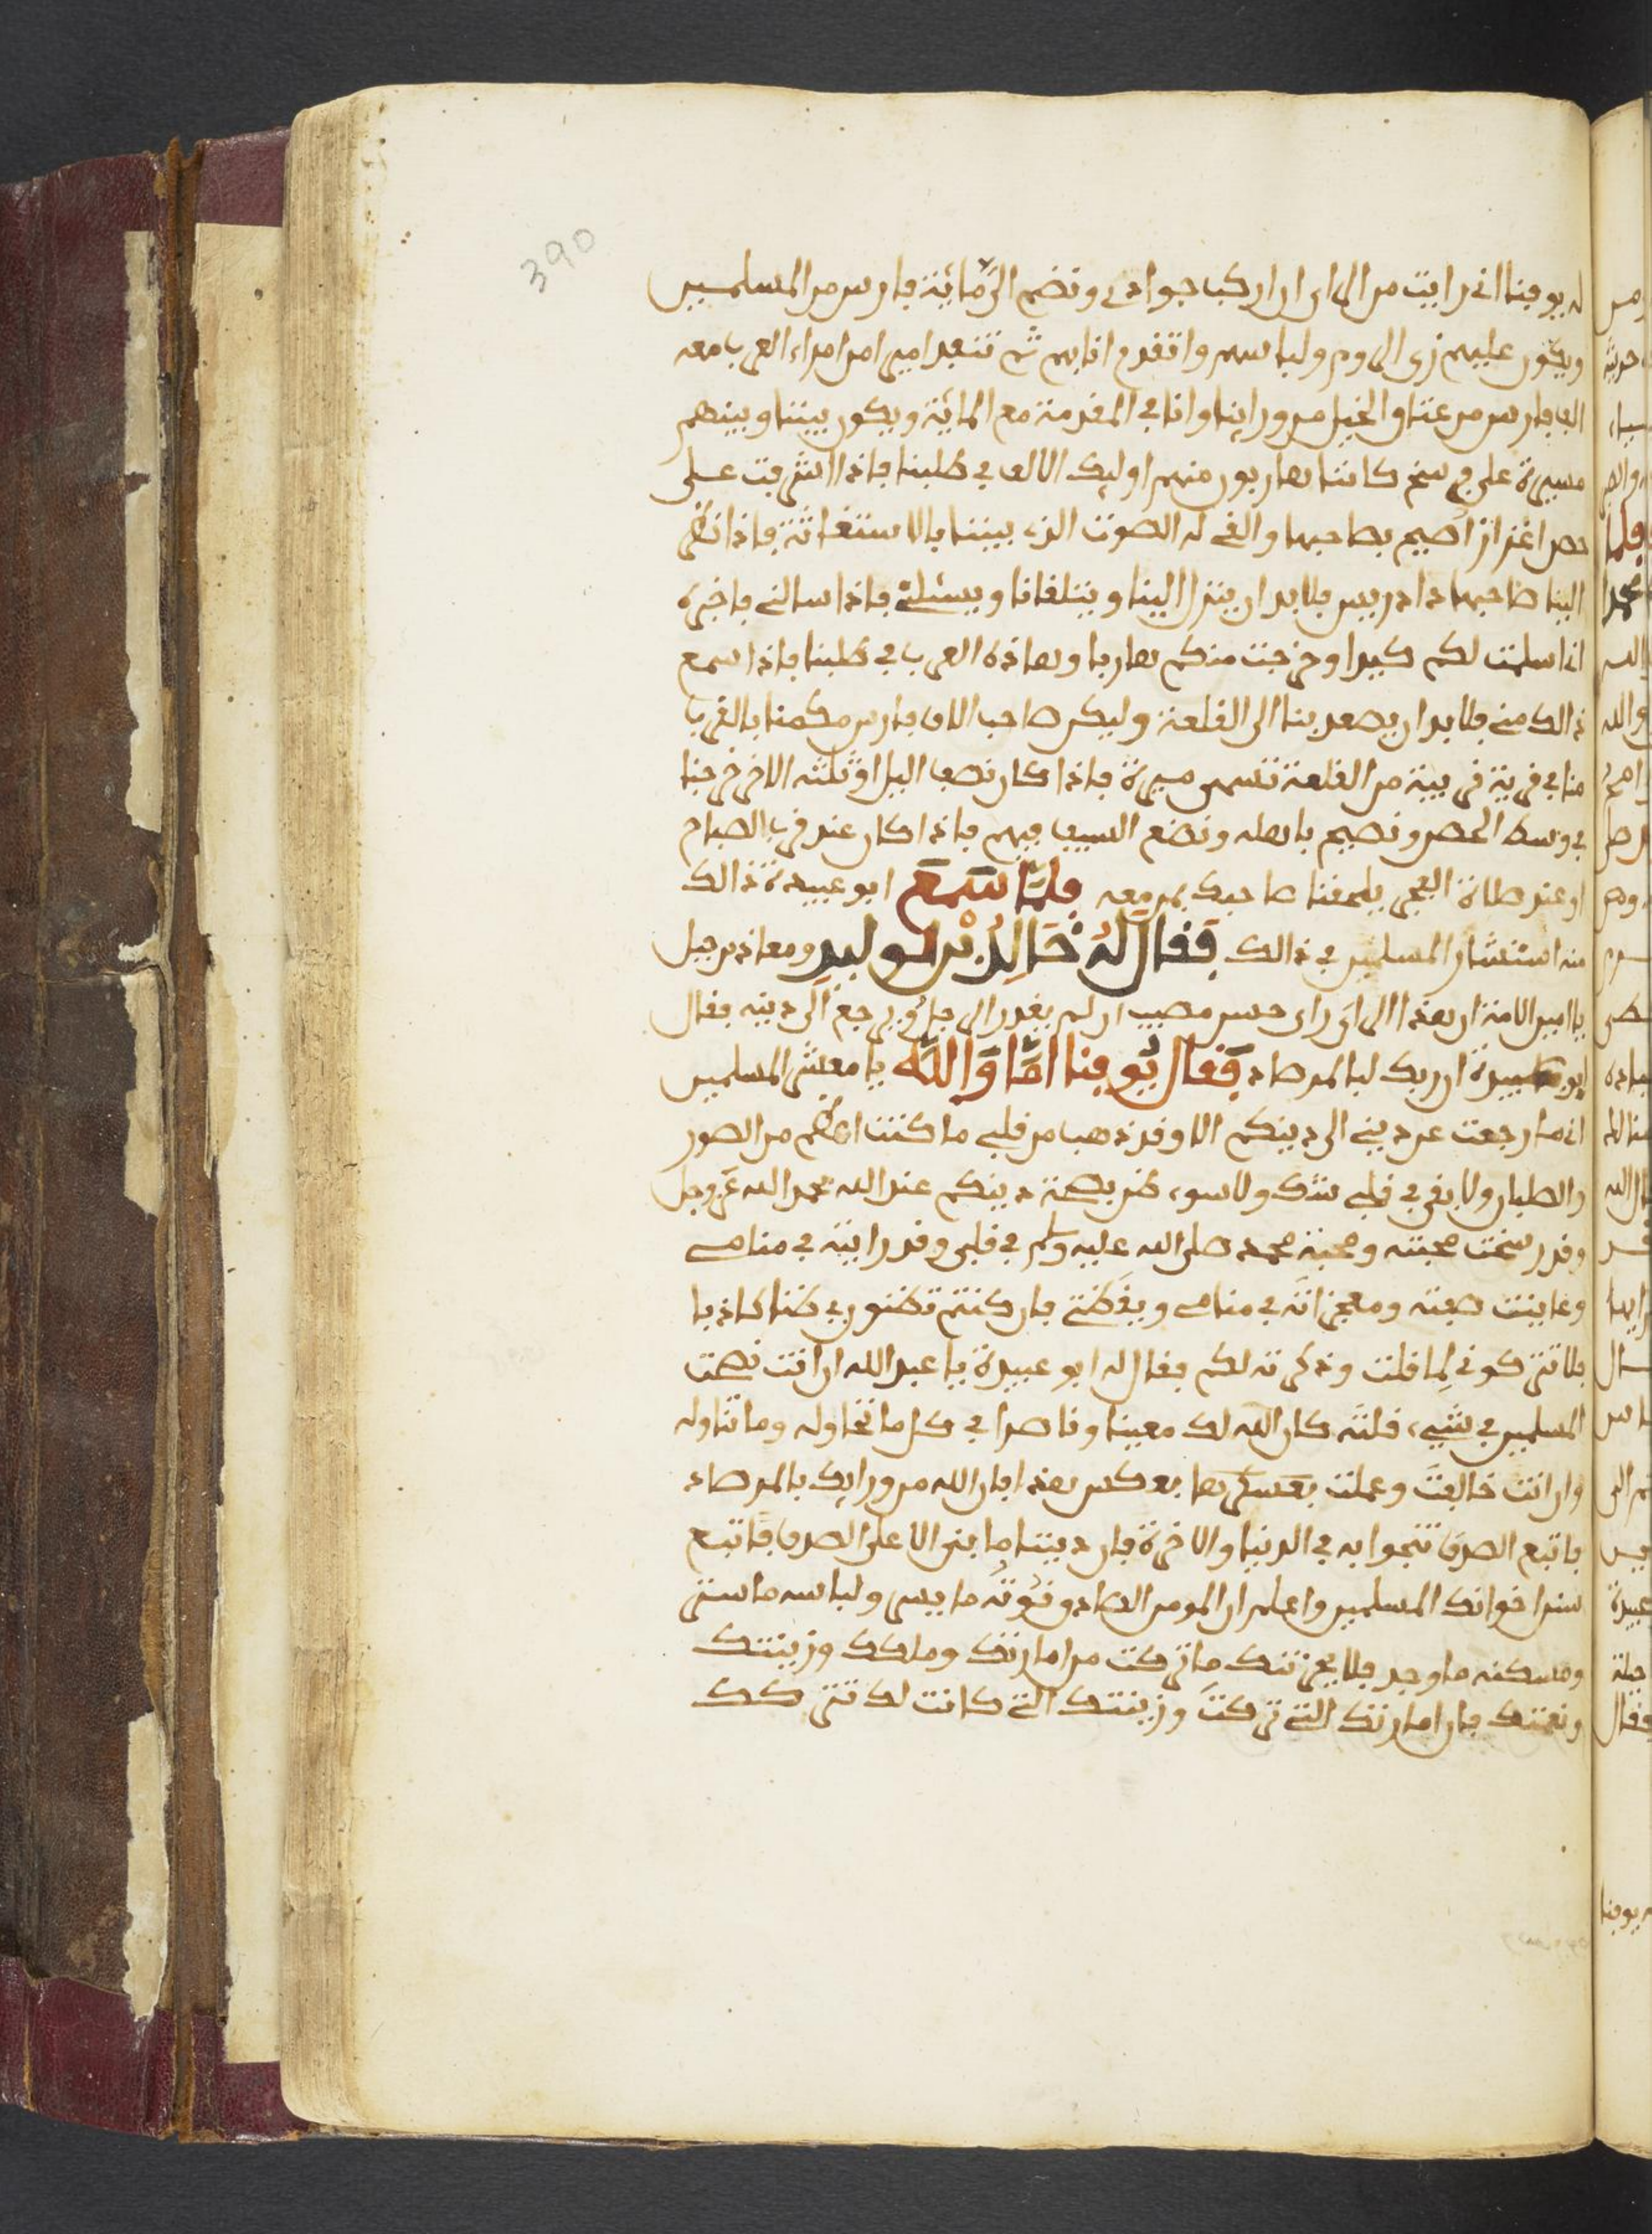 390
له يوفنا اني رايت من الراي ان اركب جوادي ونضم الي مائية فارس من المسلمين
ويكون عليهم زي الروم ولباسهم واتقدم انا بهم ثم تنفذ اميرا من امراء العرب معه
الف فارس من عتاق الخيل من ورائنا وانا في المقدمة مع المائة ويكون بيننا وبينهم
مسيرة على فرسخ كاننا هاربون منهم اوليك الالف في طلبنا فاذا اشرفت على
حصن اعزاز اصيح بصاحبها والقي له الصوت الذي بيننا بالاستغاثة فاذا نظر
الينا صاحبها دادريس فلابد ان ينزل الينا ويتلقانا ويسئلني فاذا سالني فاخبره
اني اسلمت لكم كيدا وخرجت منكم هاربا وهاذه العرب في طلبنا فاذا سمع
ذالك مني فلابد ان يصعد بنا الى القلعة وليكن صاحب الالف فارس مكمنا بالقرب
منا في قرية قريبة من القلعة تسمى ميرة فاذا كان نصف اليل او ثلثه الاخر خرجنا
في وسط الحصن ونصيح باهله ونضع السيف فيهم فاذا كان عند قرب الصباح
او عند صلاة الفجر يلحقنا صاحبك بمن معه فلما سمع ابو عبيدة ذالك
منه استشار المسلمين في ذالك فقال له خالد بن الوليد ومعاذ بن جبل
يا امين الامة ان هذا الراي راي حسن مصيب ان لم يغدر الرجل او يرجع الى دينه فقال
ابو عبيدة ان ربك لبالمرصاد فقال يوقنا اما والله يا معشر المسلمين
اني ما رجعت عن ديني الى دينكم الا وقد ذهب من قلبي ما كنت اعظم من الصور
والصلبان ولا بقي في قلبي شك ولا سوء ظن بصحة دينكم عند الله بحمد الله عز وجل
وقد رسخت محبته ومحبة محمد صلى الله عليه وسلم في قلبي وقد رايته في منامي
وعاينت صفته ومعجزاته في منامي ويقظتي فان كنتم تظنون بي ظنا كاذبا
فلا تتركوني لما قلت وذكرته لكم فقال له ابو عبيدة يا عبد الله ان انت نصحت
المسلمين في شيء قلته كان الله لك معينا وناصرا في كل ما تحاوله وما تتاوله
وان انت خالفت وعملت بعسكرها بعكس هذا فان الله من ورايك بالمرصاد
فاتبع الصدق تنجوا به في الدنيا والاخرة فان ديننا ما بني الا على الصدق فاتبع
سنن اخوانك المسلمين واعلم ان المومن الصادق قوته ما يسر ولباسه ما ستر
ومسكنه ما وجد فلا يحزنك ما تركت من امارتك وملكك وزينتك
ونعمتك فان امارتك التي تركت وزينتك التي كانت لك تتركك